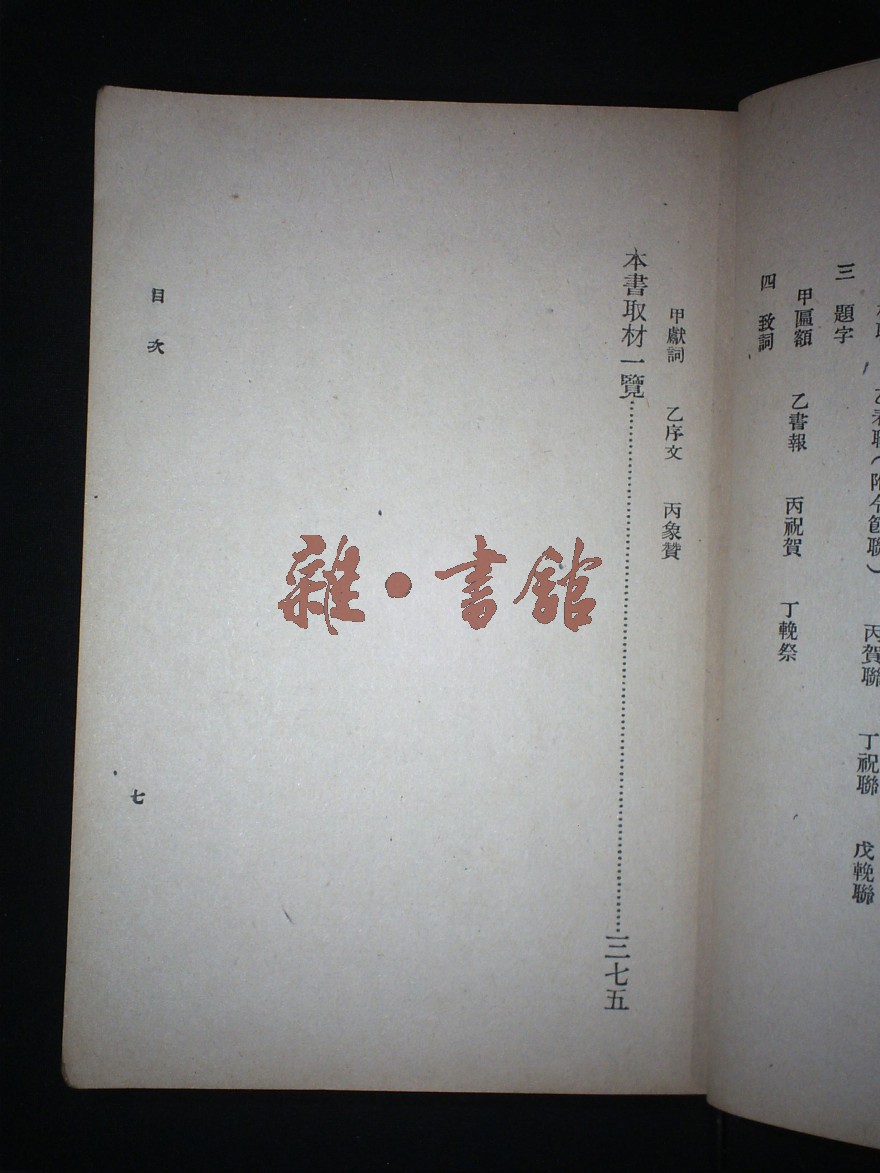 乙春聯（附令節聯） 丙賀聯 丁祝聯 戊輓聯
三 題字
甲匾額 乙書報 丙祝賀 丁輓祭
四 致詞
甲獻詞 乙序文 丙象贊
本書取材一覽……三七五
目次
七
雜·書館